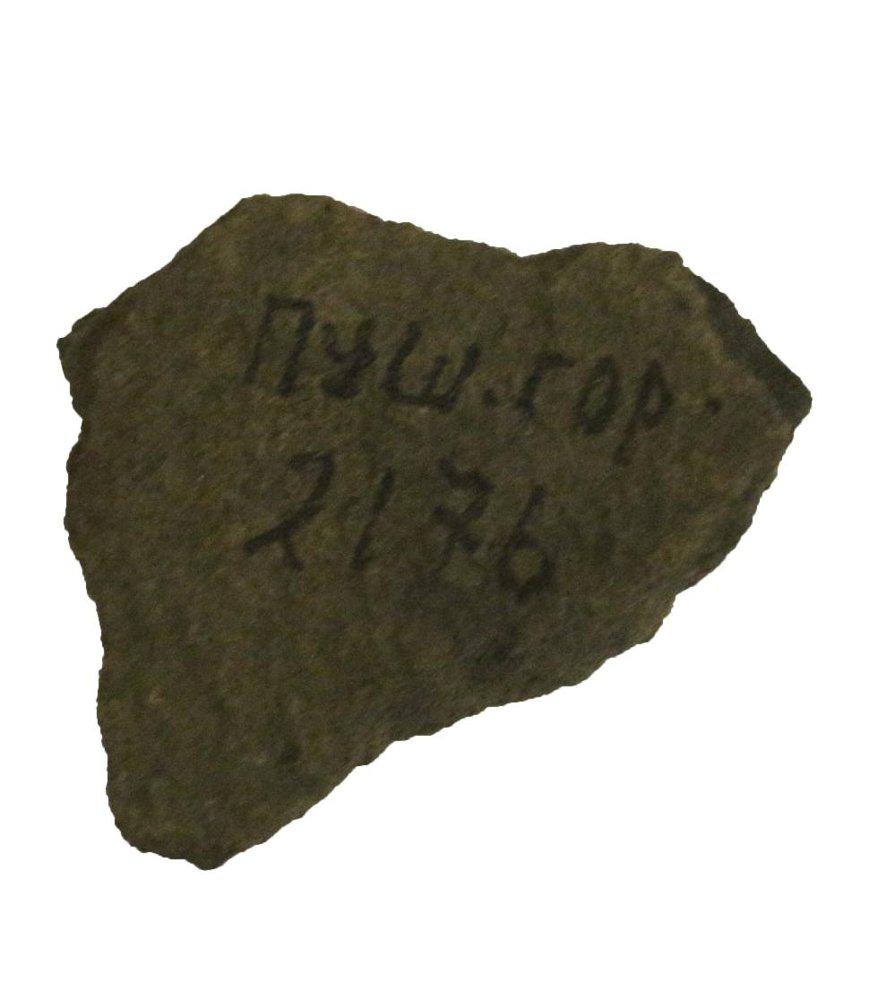 Пуш.гор.
2176